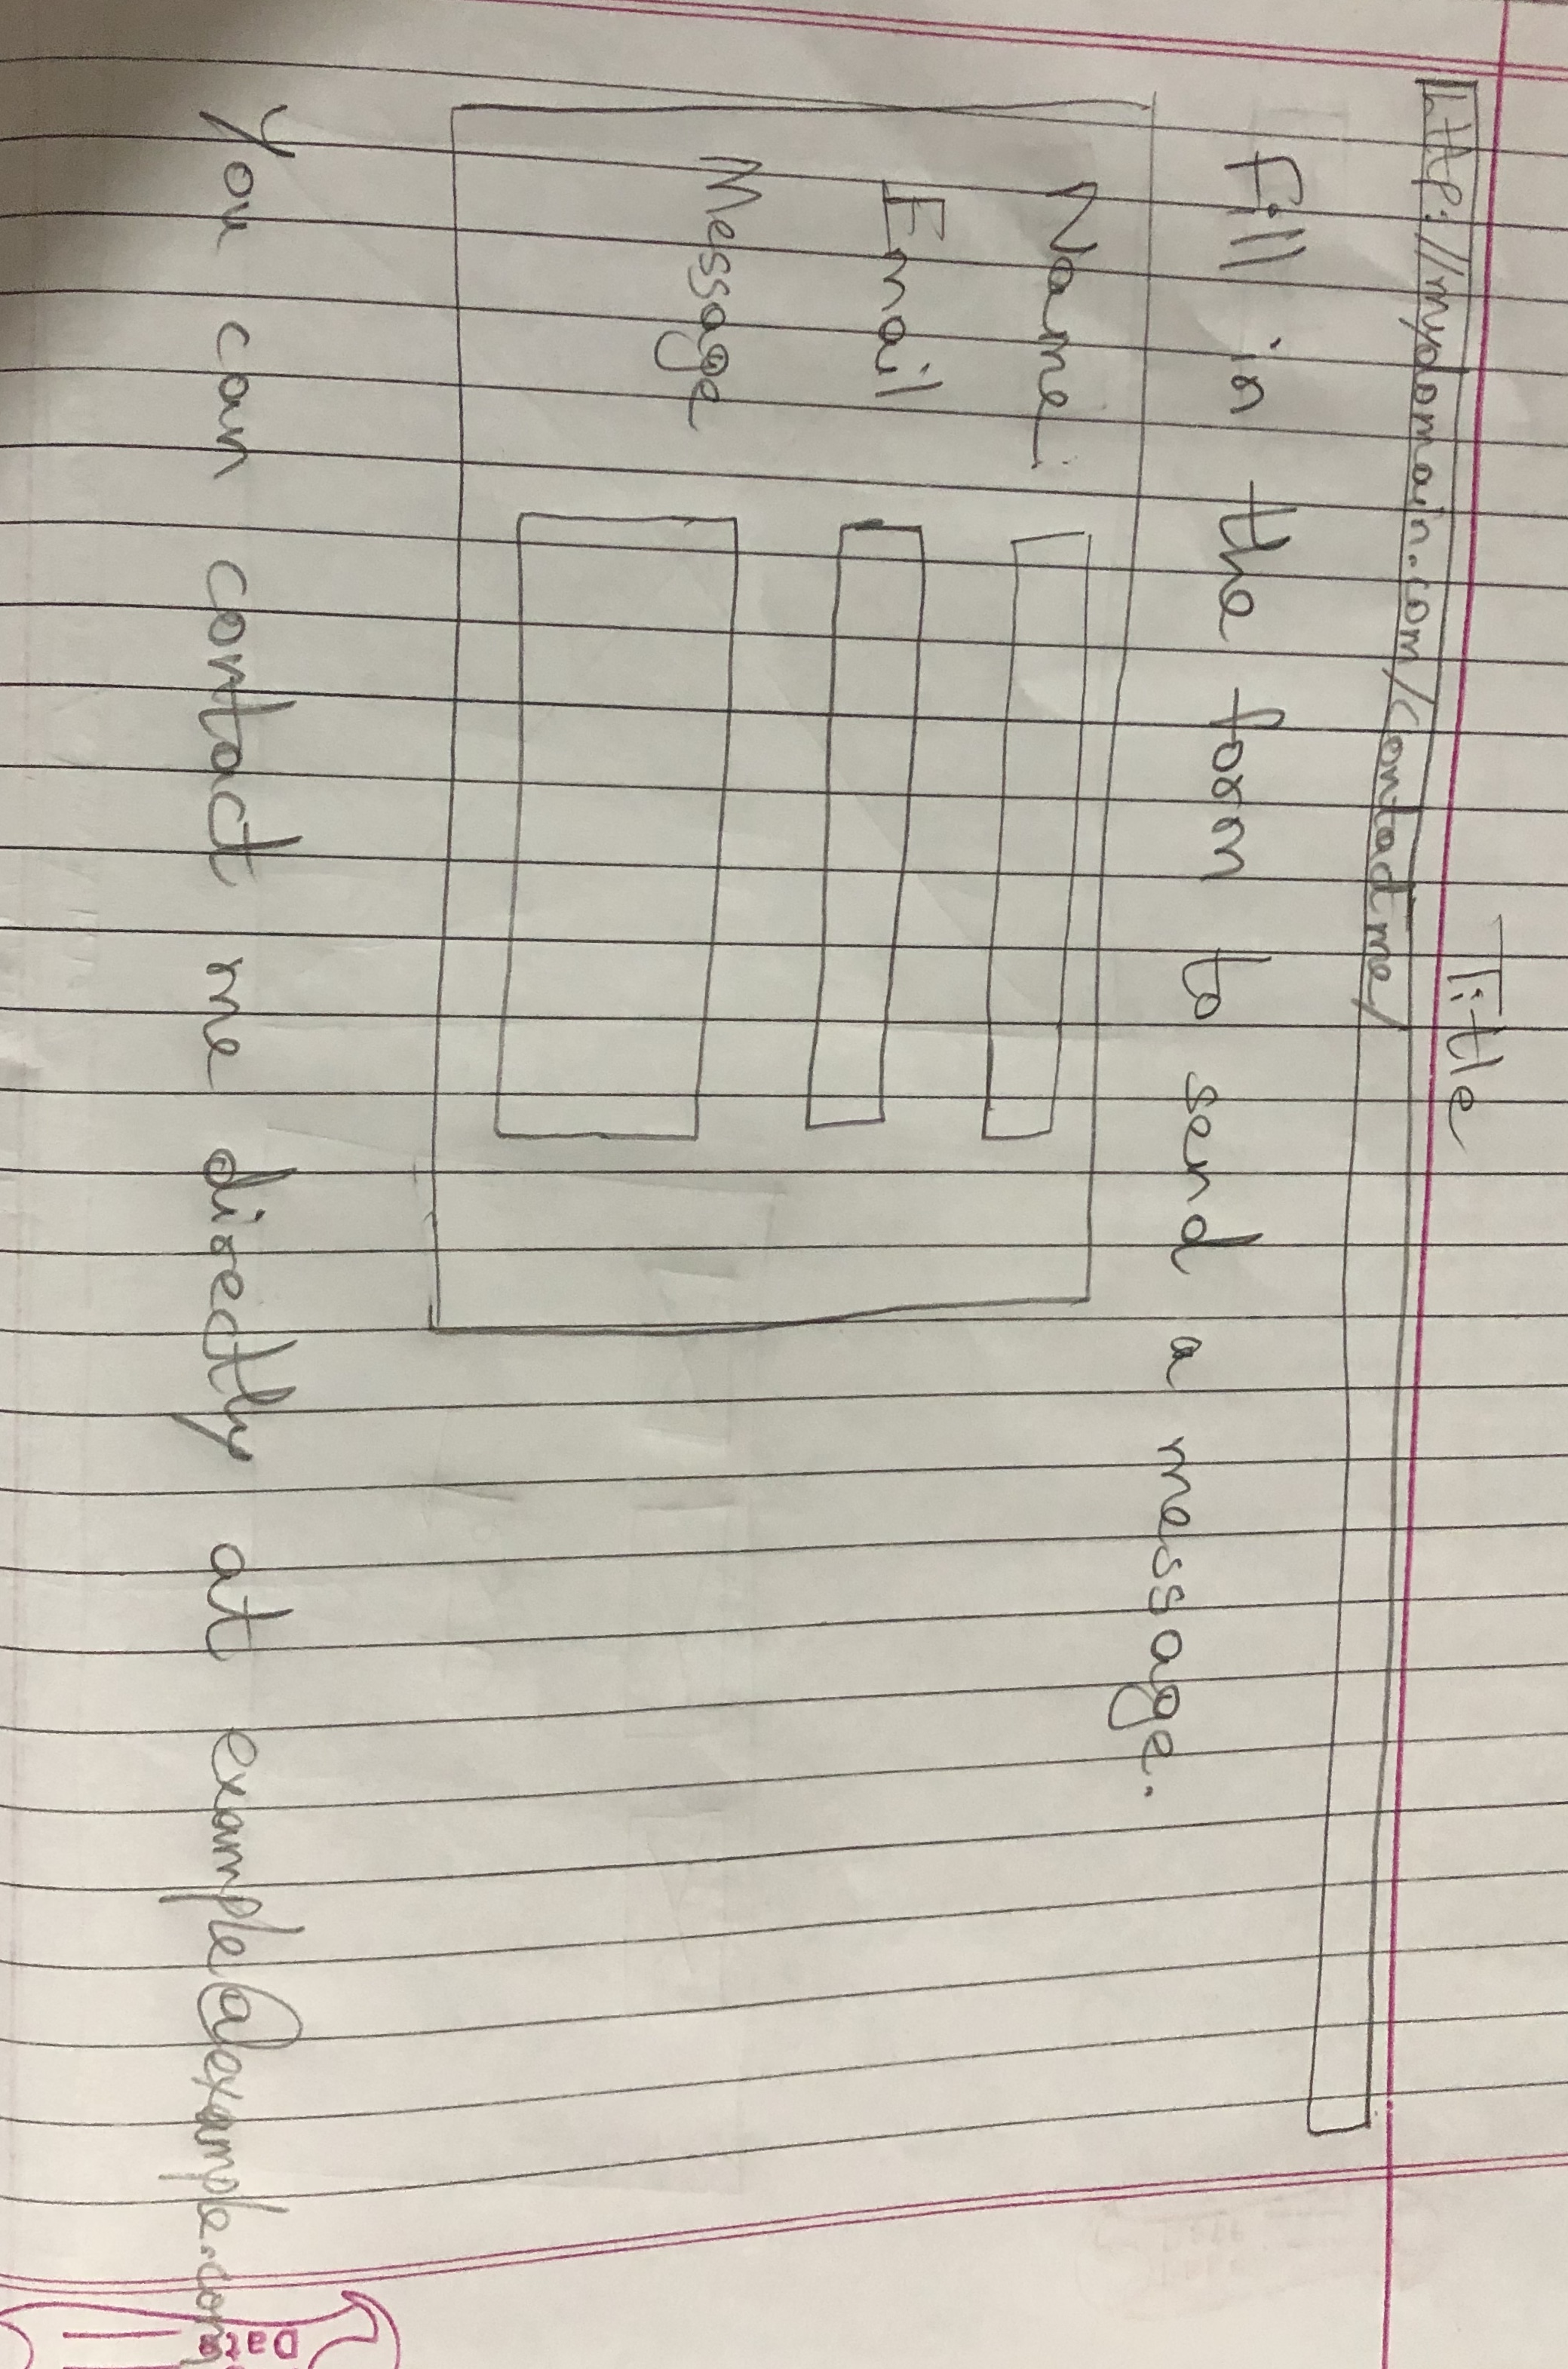 Title
http://mydomain.com/contactme/
Fill in the form to send a message.
Name:
Email
Message
You can contact me directly at example@example.com
Date